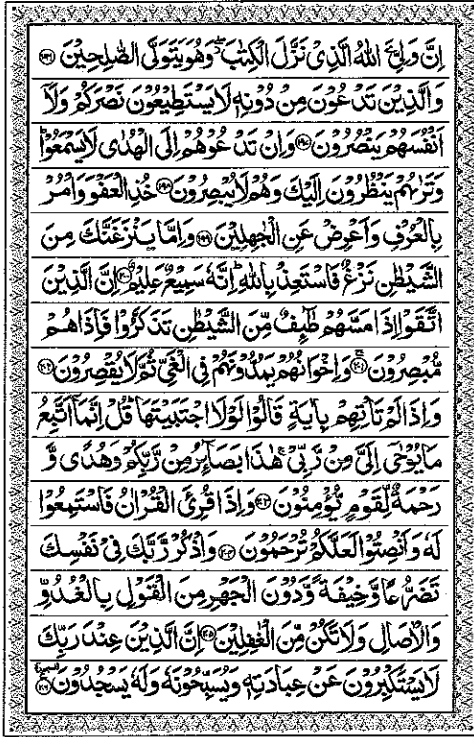 اِنَّ وَلِیِّۧ اللّٰهُ الَّذِیْ نَزَّلَ الْكِتٰبَ ۖ وَهُوَ یَتَوَلَّی الصّٰلِحِیْنَ ﴿۱۹۶﴾
وَالَّذِیْنَ تَدْعُوْنَ مِنْ دُوْنِهٖ لَا یَسْتَطِیْعُوْنَ نَصْرَكُمْ وَلَاۤ
اَنْفُسَهُمْ یَنْصُرُوْنَ ﴿۱۹۷﴾ وَاِنْ تَدْعُوْهُمْ اِلَی الْهُدٰی لَا یَسْمَعُوْا ؕ
وَتَرٰىهُمْ یَنْظُرُوْنَ اِلَیْكَ وَهُمْ لَا یُبْصِرُوْنَ ﴿۱۹۸﴾ خُذِ الْعَفْوَ وَاْمُرْ
بِالْعُرْفِ وَاَعْرِضْ عَنِ الْجٰهِلِیْنَ ﴿۱۹۹﴾ وَاِمَّا یَنْزَغَنَّكَ مِنَ
الشَّیْطٰنِ نَزْغٌ فَاسْتَعِذْ بِاللّٰهِ ؕ اِنَّهٗ سَمِیْعٌ عَلِیْمٌ ﴿۲۰۰﴾ اِنَّ الَّذِیْنَ
اتَّقَوْا اِذَا مَسَّهُمْ طٰٓىِٕفٌ مِّنَ الشَّیْطٰنِ تَذَكَّرُوْا فَاِذَا هُمْ
مُّبْصِرُوْنَ ﴿۲۰۱﴾ وَاِخْوَانُهُمْ یَمُدُّوْنَهُمْ فِی الْغَیِّ ثُمَّ لَا یُقْصِرُوْنَ ﴿۲۰۲﴾
وَاِذَا لَمْ تَاْتِهِمْ بِاٰیَةٍ قَالُوْا لَوْلَا اجْتَبَیْتَهَا ؕ قُلْ اِنَّمَاۤ اَتَّبِعُ
مَا یُوْحٰۤی اِلَیَّ مِنْ رَّبِّیْ ۚ هٰذَا بَصَآىِٕرُ مِنْ رَّبِّكُمْ وَهُدًی وَّ
رَحْمَةٌ لِّقَوْمٍ یُّؤْمِنُوْنَ ﴿۲۰۳﴾ وَاِذَا قُرِئَ الْقُرْاٰنُ فَاسْتَمِعُوْا
لَهٗ وَاَنْصِتُوْا لَعَلَّكُمْ تُرْحَمُوْنَ ﴿۲۰۴﴾ وَاذْكُرْ رَّبَّكَ فِیْ نَفْسِكَ
تَضَرُّعًا وَّخِیْفَةً وَّدُوْنَ الْجَهْرِ مِنَ الْقَوْلِ بِالْغُدُوِّ
وَالْاٰصَالِ وَلَا تَكُنْ مِّنَ الْغٰفِلِیْنَ ﴿۲۰۵﴾ اِنَّ الَّذِیْنَ عِنْدَ رَبِّكَ
لَا یَسْتَكْبِرُوْنَ عَنْ عِبَادَتِهٖ وَیُسَبِّحُوْنَهٗ وَلَهٗ یَسْجُدُوْنَ ﴿۲۰۶﴾